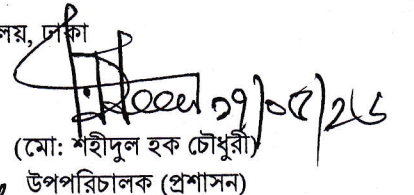 লয়, ঢাকা
(মো: শহীদুল হক চৌধুরী)
উপপরিচালক (প্রশাসন)